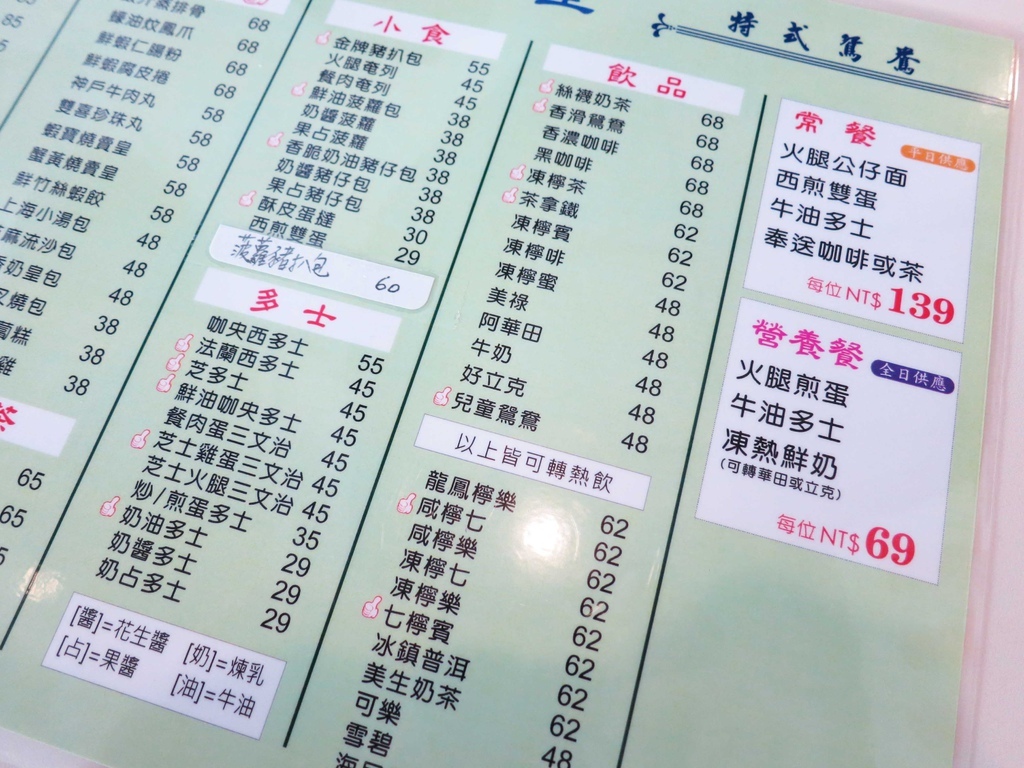 特式鴛鴦
85
排骨 68
蠔油炆鳳爪 68
鮮蝦仁腸粉 68
鮮蝦腐皮捲 68
神戶牛肉丸 58
雙喜珍珠丸 58
蝦寶燒賣皇 58
蟹黃燒賣皇 58
鮮竹絲蝦餃 58
上海小湯包 48
麻流沙包 48
奶皇包 48
燒包 48
糕 38
雞 38
38
茶
65
65
小食
金牌豬扒包 55
火腿奄列 45
餐肉奄列 45
鮮油菠蘿包 38
奶醬菠蘿 38
果占菠蘿 38
香脆奶油豬仔包 38
奶醬豬仔包 38
果占豬仔包 38
酥皮蛋撻 30
西煎雙蛋 29
菠蘿豬扒包 60
多士
咖央西多士 55
法蘭西多士 45
芝多士 45
鮮油咖央多士 45
餐肉蛋三文治 45
芝士雞蛋三文治 45
芝士火腿三文治 45
炒/煎蛋多士 35
奶油多士 29
奶醬多士 29
奶占多士 29
[醬]=花生醬 [奶]=煉乳
[占]=果醬 [油]=牛油
飲品
絲襪奶茶 68
香滑鴛鴦 68
香濃咖啡 68
黑咖啡 68
凍檸茶 68
茶拿鐵 62
凍檸賓 62
凍檸啡 62
凍檸蜜 48
美祿 48
阿華田 48
牛奶 48
好立克 48
兒童鴛鴦 48
以上皆可轉熱飲
龍鳳檸樂 62
咸檸七 62
咸檸樂 62
凍檸七 62
凍檸樂 62
七檸賓 62
冰鎮普洱 62
美生奶茶 62
可樂 48
雪碧
常餐 平日供應
火腿公仔面
西煎雙蛋
牛油多士
奉送咖啡或茶
每位NT$139
營養餐 全日供應
火腿煎蛋
牛油多士
凍熱鮮奶
(可轉華田或立克)
每位NT$69